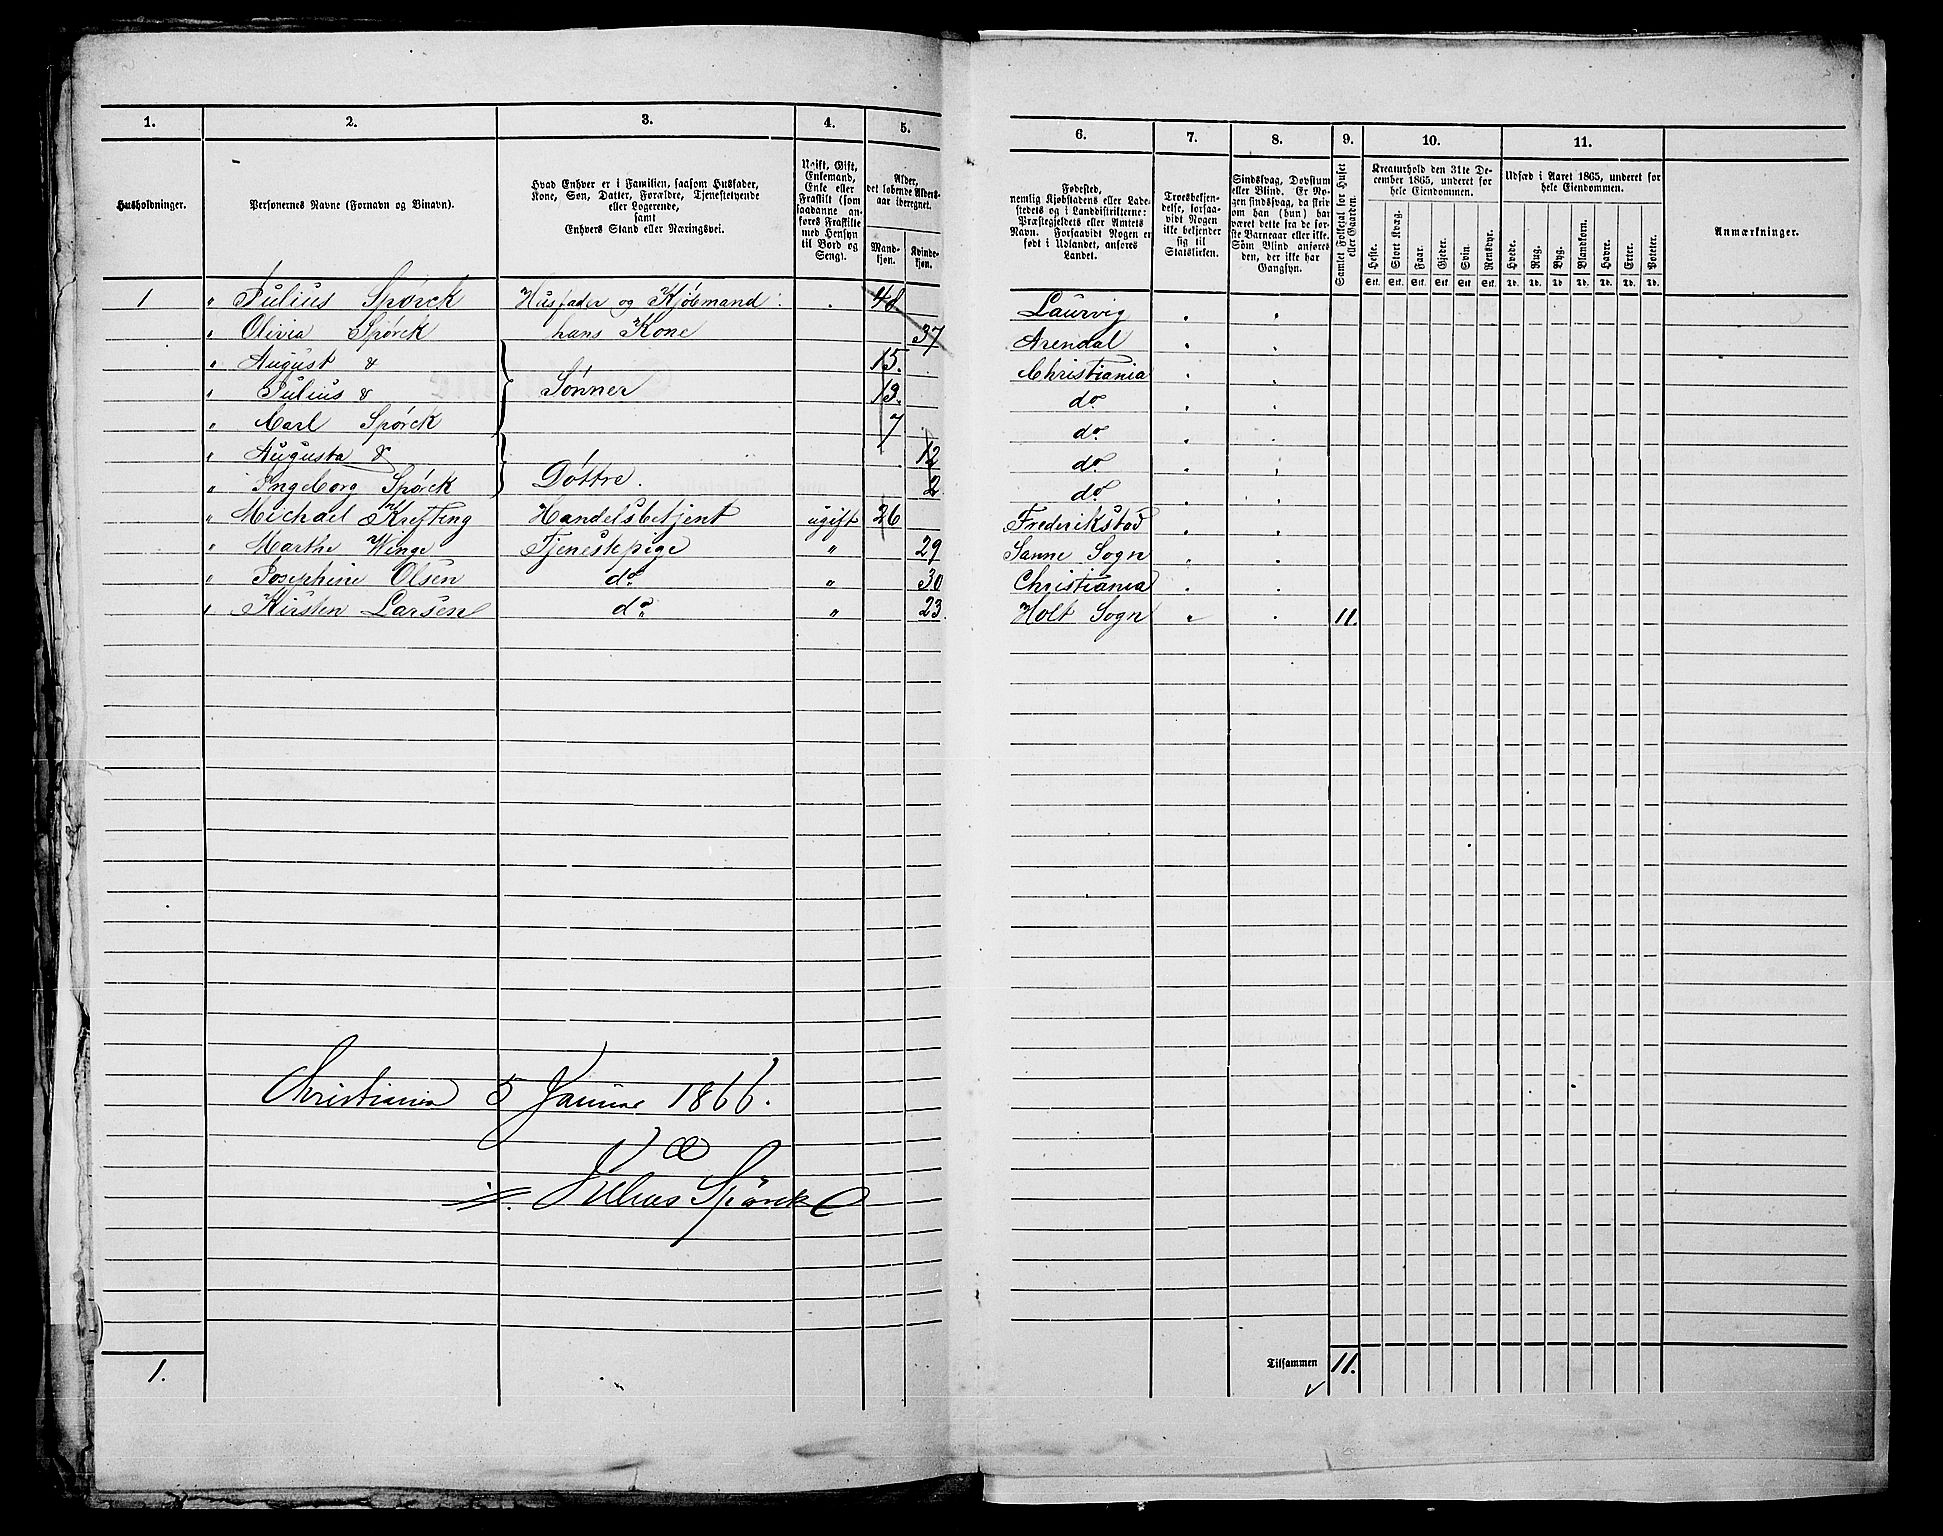 1. 2. 3. 4. 5. 6. 7. 8. 9. 10. 11.
Husholdninger.
Personernes Navne (Fornavn og Binavn).
Hvad Enhver er i Familien, saasom Husfader,
Kone, Søn, Datter, Forældre, Tjenestetyende
eller Logerende,
samt
Enhvers Stand eller Næringsvei.
Ugift, Gift,
Enkemand,
Enke eller
Fraskilt (som
saadanne an-
føres Fraskilte
med Hensyn
til Bord og
Seng).
Alder,
det løbende Alders-
aar iberegnet.
Mand-
kjøn.
Kvinde-
kjøn.
Fødested,
nemlig Kjøbstadens eller Lade-
stedets og i Landdistrikterne:
Præstegjeldets eller Amtets
Navn. Forsaavidt Nogen er
født i Udlandet, anføres
Landet.
Troesbekjen-
delse, forsaa-
vidt Nogen
ikke bekjender
sig til
Statskirken.
Sindssvag, Døvstum
eller Blind. Er No-
gen sindssvag, da skriv
om han (hun) har
været dette fra de før-
ste Barneaar eller ikke.
Som Blind anføres
den, der ikke har
Gangsyn.
Samlet Folketal for Huset
eller Gaarden.
Kreaturhold den 31te De-
cember 1865, underet for
hele Eiendommen.
Heste. Stort Kvæg. Faar. Gjeder. Svin. Rensdyr.
Stk. Stk. Stk. Stk. Stk. Stk.
Udsæd i Aaret 1865, underet for
hele Eiendommen.
Hvede. Rug. Byg. Blandkorn. Havre. Erter. Poteter.
Td. Td. Td. Td. Td. Td. Td.
Anmærkninger.
1 " Julius Spørck Husfader og Kjøbmand 48 Laurvig
" Olivia Spørck hans Kone 37 Arendal
" August & 15. Christiania
" Julius & Sønner 13. do
" Carl Spørck 7 do
" Augusta & 12 do
" Ingeborg Spørck Døttre. 2 do
" Michael Krefting Handelsbetjent ugift 26 Frederikstad
" Marthe Winge Tjenestepige " 29 Sanne Sogn
" Josephine Olsen do " 30 Christiania
" Kirsten Larsen do " 23 Holt Sogn " 11.
Christiania 5 Januar 1866.
Julius Spørck
1.
Tilsammen 11.